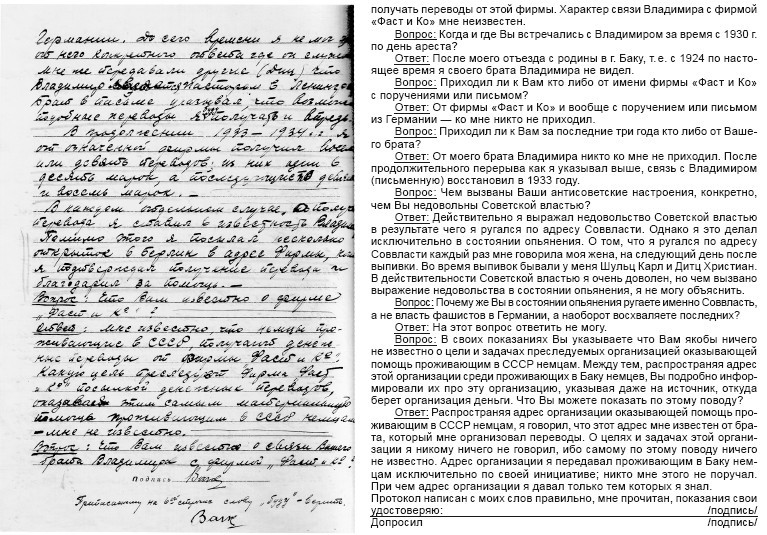 Германии. До сего времени я не мог
от него конкретного ответа где он служит
мне же передавали другие (Дит) что
Владимир является пастором в
Крайз в письме указывая, что
подобные переводы я получать и впредь.
В продолжении 1933–1934 г. я
от означенной фирмы получил
или девять переводов; из них один в
десять марок, а последующие по девять
и восемь марок. –
В каждом отдельном случае, о получении
перевода я ставил в известность
Помимо этого я посылал несколько
открыток в Берлин в адрес фирмы,
я подтверждал получение перевода и
благодарил за помощь. –
Вопрос: Что Вам известно о фирме
„Фаст и К°"?
Ответ: Мне известно, что немцы про-
живающие в СССР, получают денеж-
ные переводы от фирмы Фаст и К°.
Какую цель преследует фирма Фаст
и К° посылкой денежных переводов,
оказывая этим самым материальную
помощь проживающим в СССР немцам
– мне не известно.
Вопрос: Что Вам известно о связи Вашего
брата Владимира с фирмой „Фаст и К°"?
Подпись
Приписанному на 6й строке слову „буду" – верить.
получать переводы от этой фирмы. Характер связи Владимира с фирмой
«Фаст и Ко» мне неизвестен.
Вопрос: Когда и где Вы встречались с Владимиром за время с 1930 г.
по день ареста?
Ответ: После моего отъезда с родины в г. Баку, т. е. с 1924 по насто-
ящее время я своего брата Владимира не видел.
Вопрос: Приходил ли к Вам кто либо от имени фирмы «Фаст и Ко»
с поручениями или письмом?
Ответ: От фирмы «Фаст и Ко» и вообще с поручением или письмом
из Германии — ко мне никто не приходил.
Вопрос: Приходил ли к Вам за последние три года кто либо от Ваше-
го брата?
Ответ: От моего брата Владимира никто ко мне не приходил. После
продолжительного перерыва как я указывал выше, связь с Владимиром
(письменную) восстановил в 1933 году.
Вопрос: Чем вызваны Ваши антисоветские настроения, конкретно,
чем Вы недовольны Советской властью?
Ответ: Действительно я выражал недовольство Советской властью
в результате чего я ругался по адресу Соввласти. Однако я это делал
исключительно в состоянии опьянения. О том, что я ругался по адресу
Соввласти каждый раз мне говорила моя жена, на следующий день после
выпивки. Во время выпивок бывали у меня Шульц Карл и Дитц Христиан.
В действительности Советской властью я очень доволен, но чем вызвано
выражение недовольства в состоянии опьянения, я не могу объяснить.
Вопрос: Почему же Вы в состоянии опьянения ругаете именно Соввласть,
а не власть фашистов в Германии, а наоборот восхваляете последних?
Ответ: На этот вопрос ответить не могу.
Вопрос: В своих показаниях Вы указываете что Вам якобы ничего
не известно о цели и задачах преследуемых организацией оказывающей
помощь проживающим в СССР немцам. Между тем, распространяя адрес
этой организации среди проживающих в Баку немцев, Вы подробно инфор-
мировали их про эту организацию, указывая даже на источник, откуда
берет организация деньги. Что Вы можете показать по этому поводу?
Ответ: Распространяя адрес организации оказывающей помощь про-
живающим в СССР немцам, я говорил, что этот адрес мне известен от бра-
та, который мне организовал переводы. О целях и задачах этой органи-
зации я никому ничего не говорил, ибо самому по этому поводу ничего
не известно. Адрес организации я передавал проживающим в Баку нем-
цам исключительно по своей инициативе; никто мне этого не поручал.
При чем адрес организации я давал только тем которых я знал.
Протокол написан с моих слов правильно, мне прочитан, показания свои
удостоверяю: /подпись/
Допросил /подпись/